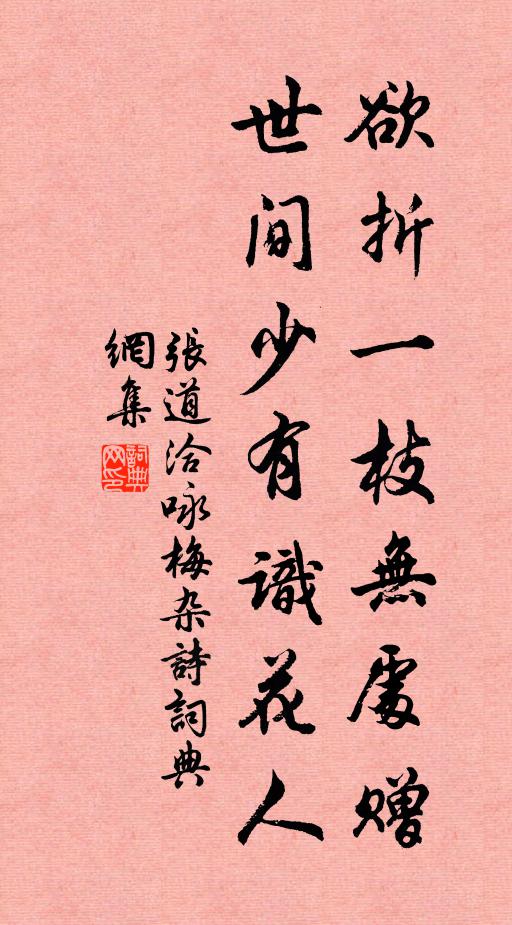 欲折一枝無處赠
世间少有識花人
張道洽咏梅杂詩詞典
網集
詞典
网印